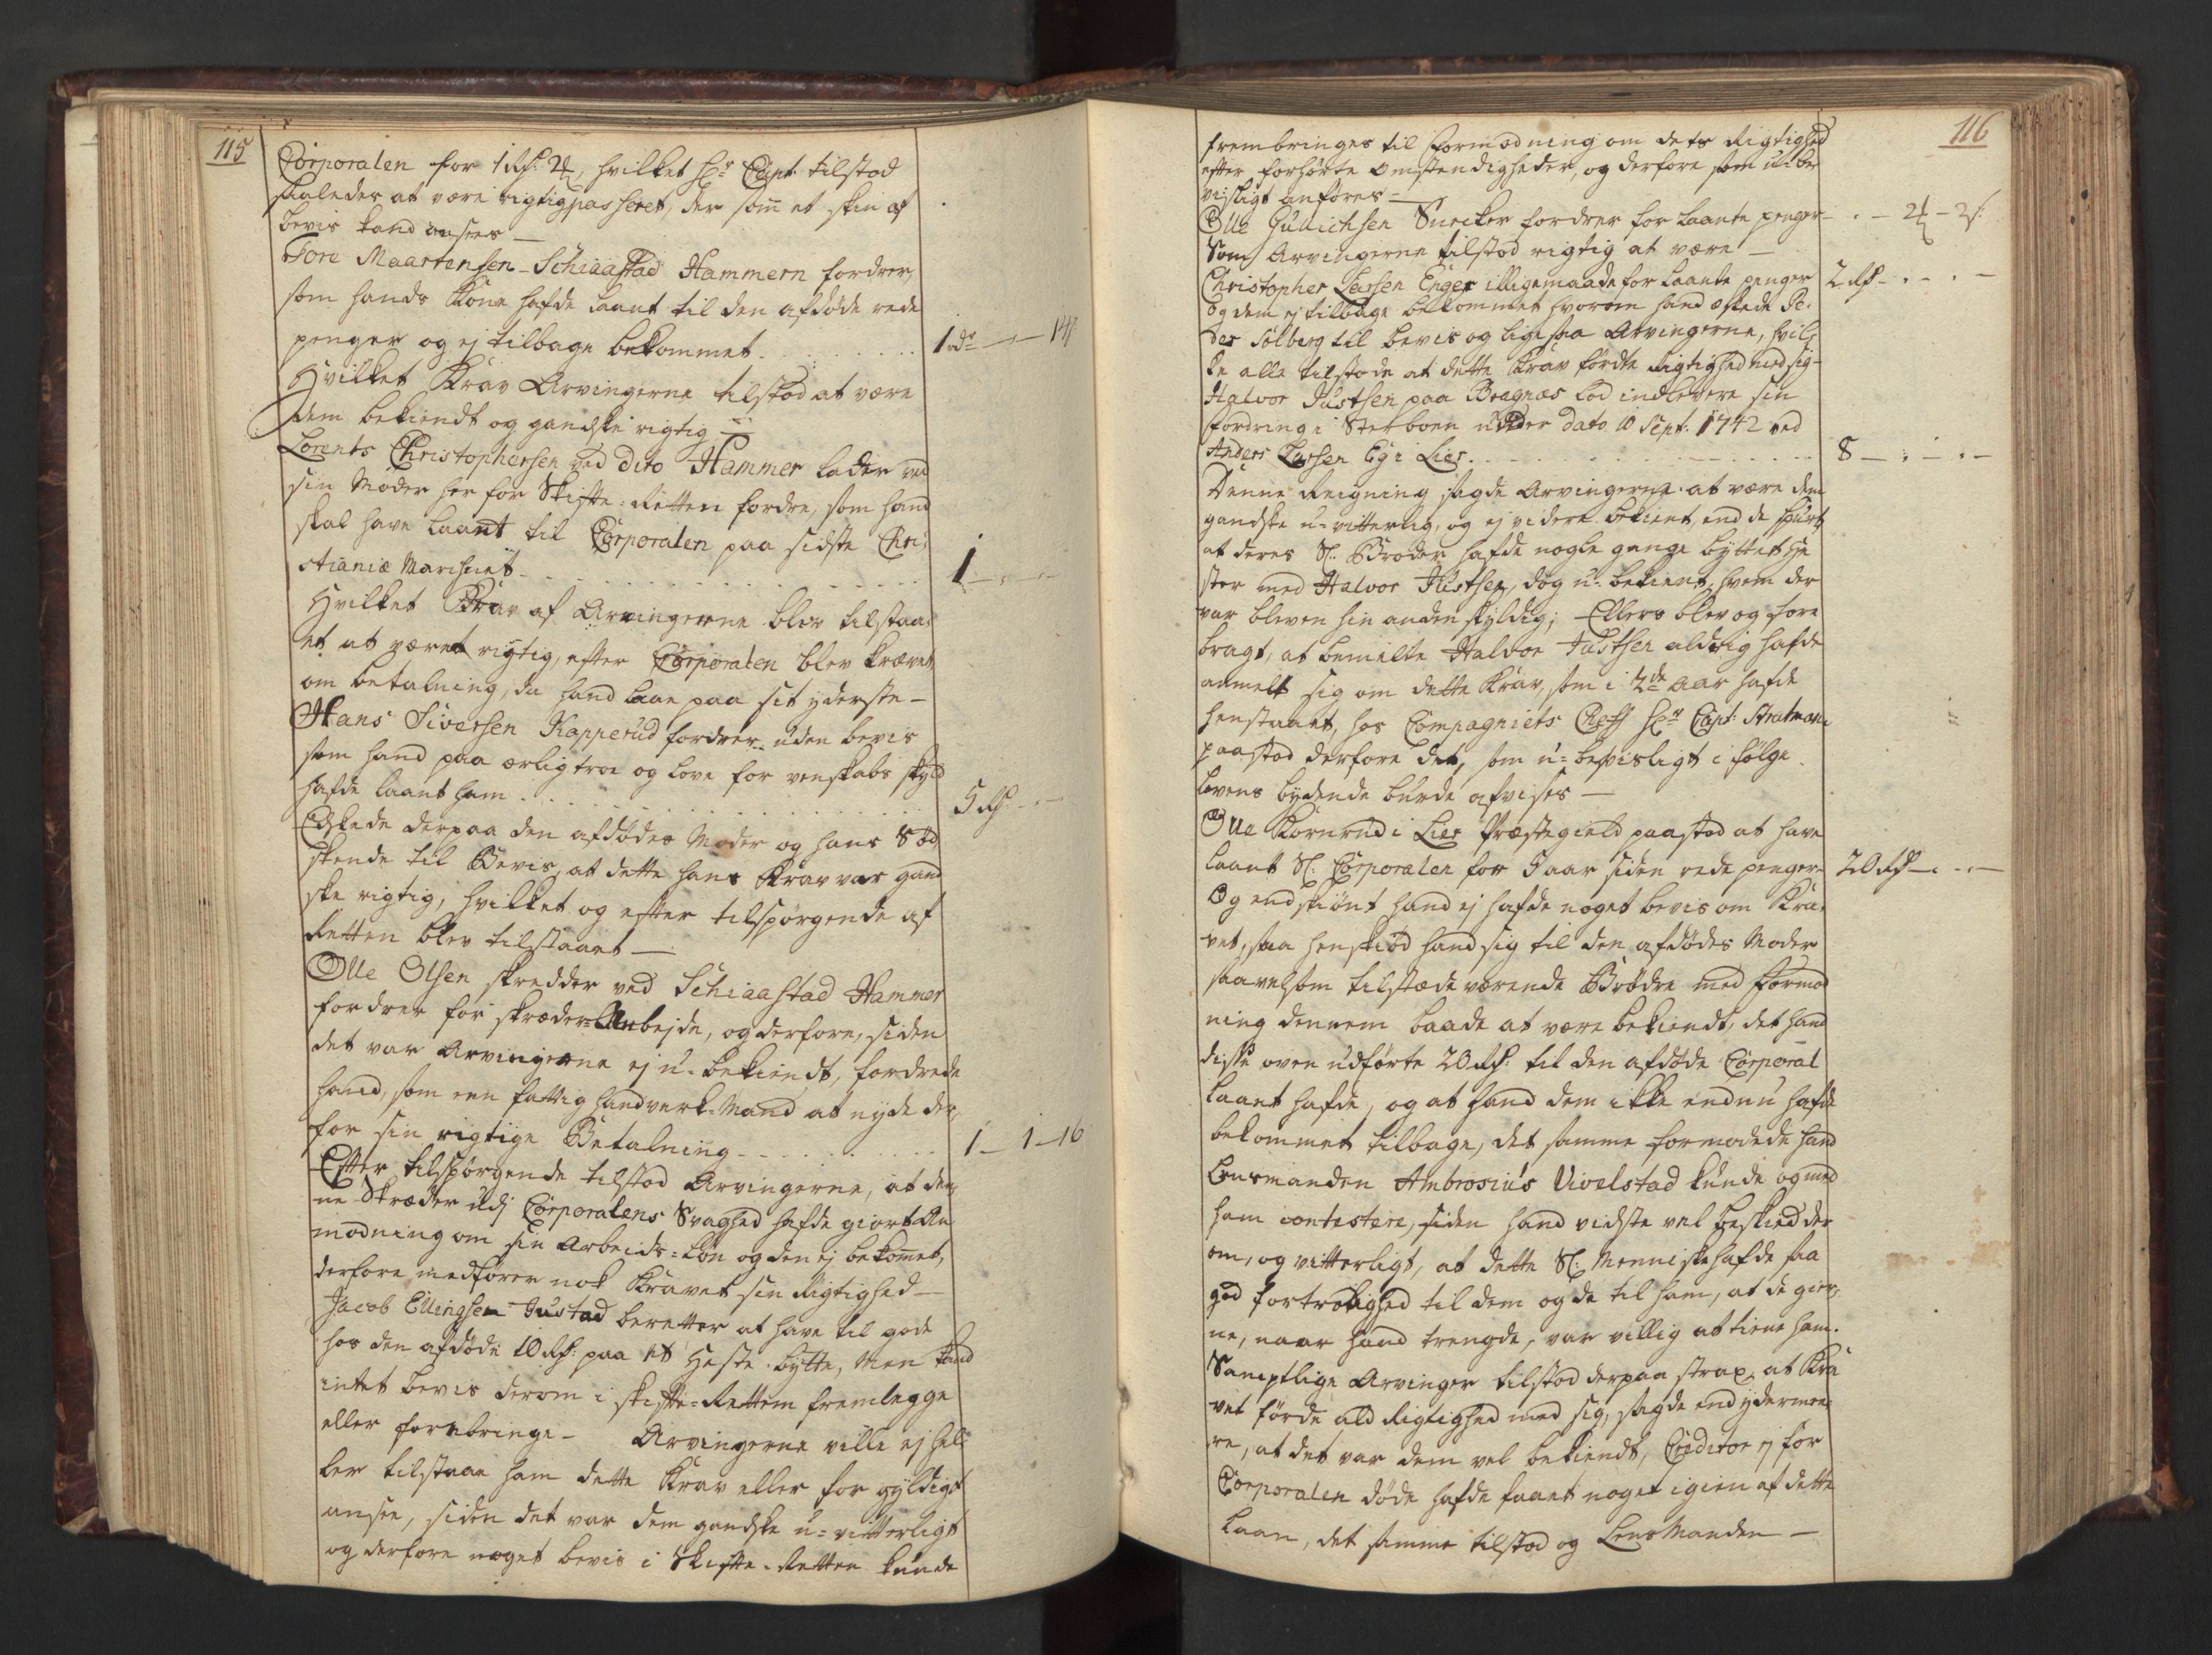 115
Corporalen for 1 Rf: 2 , hvilket Hr: Capt: tilstod
saaledes at være rigtig passeret, der som et skin af
bevis kand ansees —
Tore Maartensen - Schiaastad Hammern fordrer,
som hands Kone hafde laant til den afdøde rede
penger og ej tilbage bekommet . . . . . . . . 1
Hvilket Krav Arvingerne tilstod at være
dem bekiendt og gandske rigtig —
Lorents Christophersen ved dito Hammer lader ved
sin Moder her for Skifte-Retten fordre, som hand
skal have laant til Corporalen paa sidste Chri-
stianiæ Marchnet . . . . . . . . 1 — . — . —
Hvilket Krav af Arvingerne blev tilstaa-
et at været rigtig, efter Corporalen blev krævet
om betalning, da hand laae paa sit yderste —
Hans Siversen Kapperud fordrer uden bevis
som hand paa ærlig troe og love for venskabs skyld
hafde laant ham . . . . . . . . 5 Rf — . —
Eskede derpaa den afdødes Moder og hans Sød-
skende til Bevis, at dette hans Krav var gand
ske rigtig, hvilket og efter tilspørgende af
Retten blev tilstaaet —
Olle Olsen skredder ved Schiaastad Hammer
fordrer for skræder-Arbejde, og derfore, siden
det var Arvingerne ej u-bekiendt, fordrede
hand, som een fattig handverk-Mand at nyde der-
for sin rigtige Betalning . . . . . . . . 1 — 1 — 16
Efter tilspørgende tilstod Arvingerne, at den-
ne Skræder udj Corporalens Svaghed hafde giort An
modning om sin Arbeids-løn og den ej bekomet,
derfore medfører nok Kravet sin Rigtighed —
Jacob Ellingsen Justad beretter at have til gode
hos den afdøde 10 Rf: paa et Heste-bytte, Men kand
intet bevis derom i skifte-Rettem fremlegge
eller forebringe — Arvingerne ville ej hel-
ler tilstaae ham dette Krav eller for gyldigt
ansee, siden det var dem gandske u-vitterligt
og derfore noget bevis i Skifte-Retten kunde
116
frembringes til formodning om dets Rigtighed
efter forhørte omstendigheder, og derfore som u-be
visligt anføres —
Olle Gulichsen Surcker fordrer for laante penger — . — 2 — 2
Som Arvingerne tilstod rigtig at være —
Christopher Larsen Enger illigemaade for laante penger 2 Rf — . — . —
og dem ej tilbage bekommet hvorom hand eskede Pe-
der Solberg til bevis og ligesaa Arvingerne, hvil-
ke alle tilstode at dette Krav førdte Rigtighed med sig —
Halvor Justsen paa Bragnæs lod indlevere sin
fordring i Sterboen under dato 10 Sept: 1742 ved
Anders Larsen Eg i Lier . . . . . . . . 8 — . — . —
Denne Reigning sagde Arvingerne at være dem
gandske u-vitterlig, og ej videre bekient, end de spurt
at deres Sl: Broder hafde nogle gange byttet He
ster med Halvor Justsen, dog u-bekient, hvem der
var bleven hin anden skyldig; Ellers blev og fore
bragt, at bemelte Halvor Justsen aldrig hafde
anmelt sig om dette Krav, som i 2de Aar hafde
henstaaet, hos Compagniets Cheff Hr: Capt: Stratman
paastod derfore det, som u-bevisligt i følge
Lovens bydende burde afvises —
Olle Kornrud i Lier Præstegield paastod at have
laant Sl: Corporalen for 5 aar siden rede penger — 20 Rf — . — . —
Og endskiønt hand ej hafde noget bevis om Kra-
vet, saa henskiød hand sig til den afdødes Moder
saavelsom tilstæde værende Brødre med formod
ning dennem baade at være bekiendt, det hand
disse oven udførte 20 Rf: til den afdøde Corporal
laant hafde, og at hand dem ikke endnu hafde
bekommet tilbage, det samme formodede hand
Lensmanden Ambrosius Vivelstad kunde og med
ham contestere, siden hand vidste vel beskied der
om, og vitterligt, at dette Sl: Menniske hafde saa
god fortrolighed til dem og de til ham, at de gier-
ne, naar hand trengde, var villig at tiene ham.
Samptlige Arvinger tilstod derpaa strax, at Kra
vet førde ald Rigtighed med sig, sagde end ydermee-
re, at det var dem vel bekiendt, Creditor ej før
Corporalen døde hafde faaet noget igien af dette
Laan, det samme tilstod og LensManden —